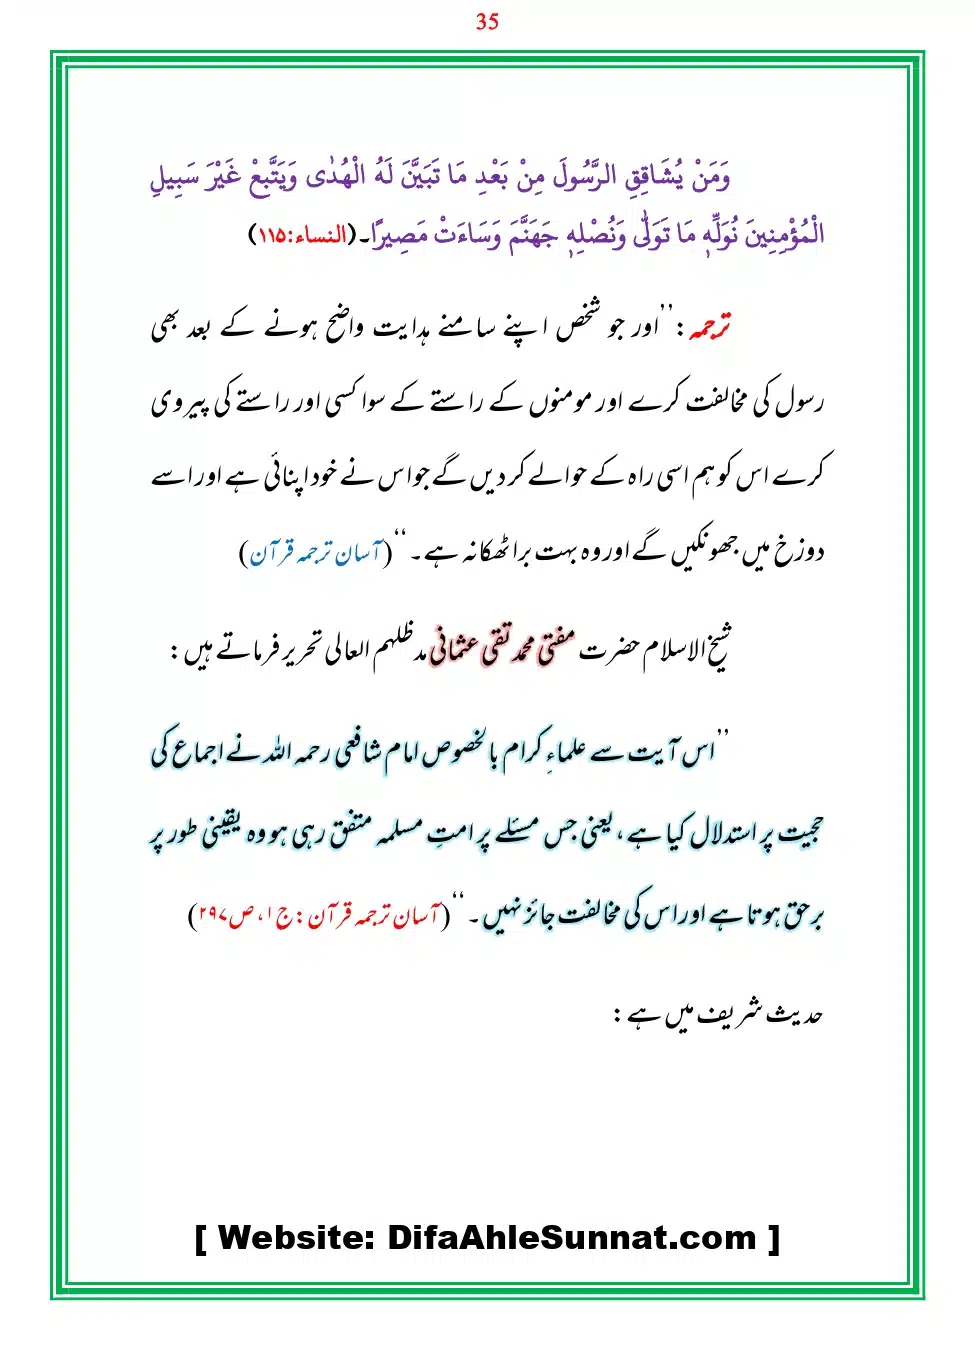 35
وَمَنْ يُشَاقِقِ الرَّسُولَ مِنْ بَعْدِ مَا تَبَيَّنَ لَهُ الْهُدٰى وَيَتَّبِعْ غَيْرَ سَبِيلِ
الْمُؤْمِنِينَ نُوَلِّهٖ مَا تَوَلّٰى وَنُصْلِهٖ جَهَنَّمَ وَسَاءَتْ مَصِيرًا۔(النساء:۱۱۵)
ترجمہ:’’اور جو شخص اپنے سامنے ہدایت واضح ہونے کے بعد بھی
رسول کی مخالفت کرے اور مومنوں کے راستے کے سوا کسی اور راستے کی پیروی
کرے اس کو ہم اسی راہ کے حوالے کردیں گے جو اس نے خود اپنائی ہے اور اسے
دوزخ میں جھونکیں گے اور وہ بہت برا ٹھکانہ ہے۔‘‘(آسان ترجمہ قرآن)
شیخ الاسلام حضرت مفتی محمد تقی عثمانی مدظلہم العالی تحریر فرماتے ہیں:
’’اس آیت سے علماءِ کرام بالخصوص امام شافعی رحمہ اللہ نے اجماع کی
حجیت پر استدلال کیا ہے، یعنی جس مسئلے پر امتِ مسلمہ متفق رہی ہو وہ یقینی طور پر
برحق ہوتا ہے اور اس کی مخالفت جائز نہیں۔‘‘(آسان ترجمہ قرآن:ج۱،ص۲۹۷)
حدیث شریف میں ہے:
[ Website: DifaAhleSunnat.com ]